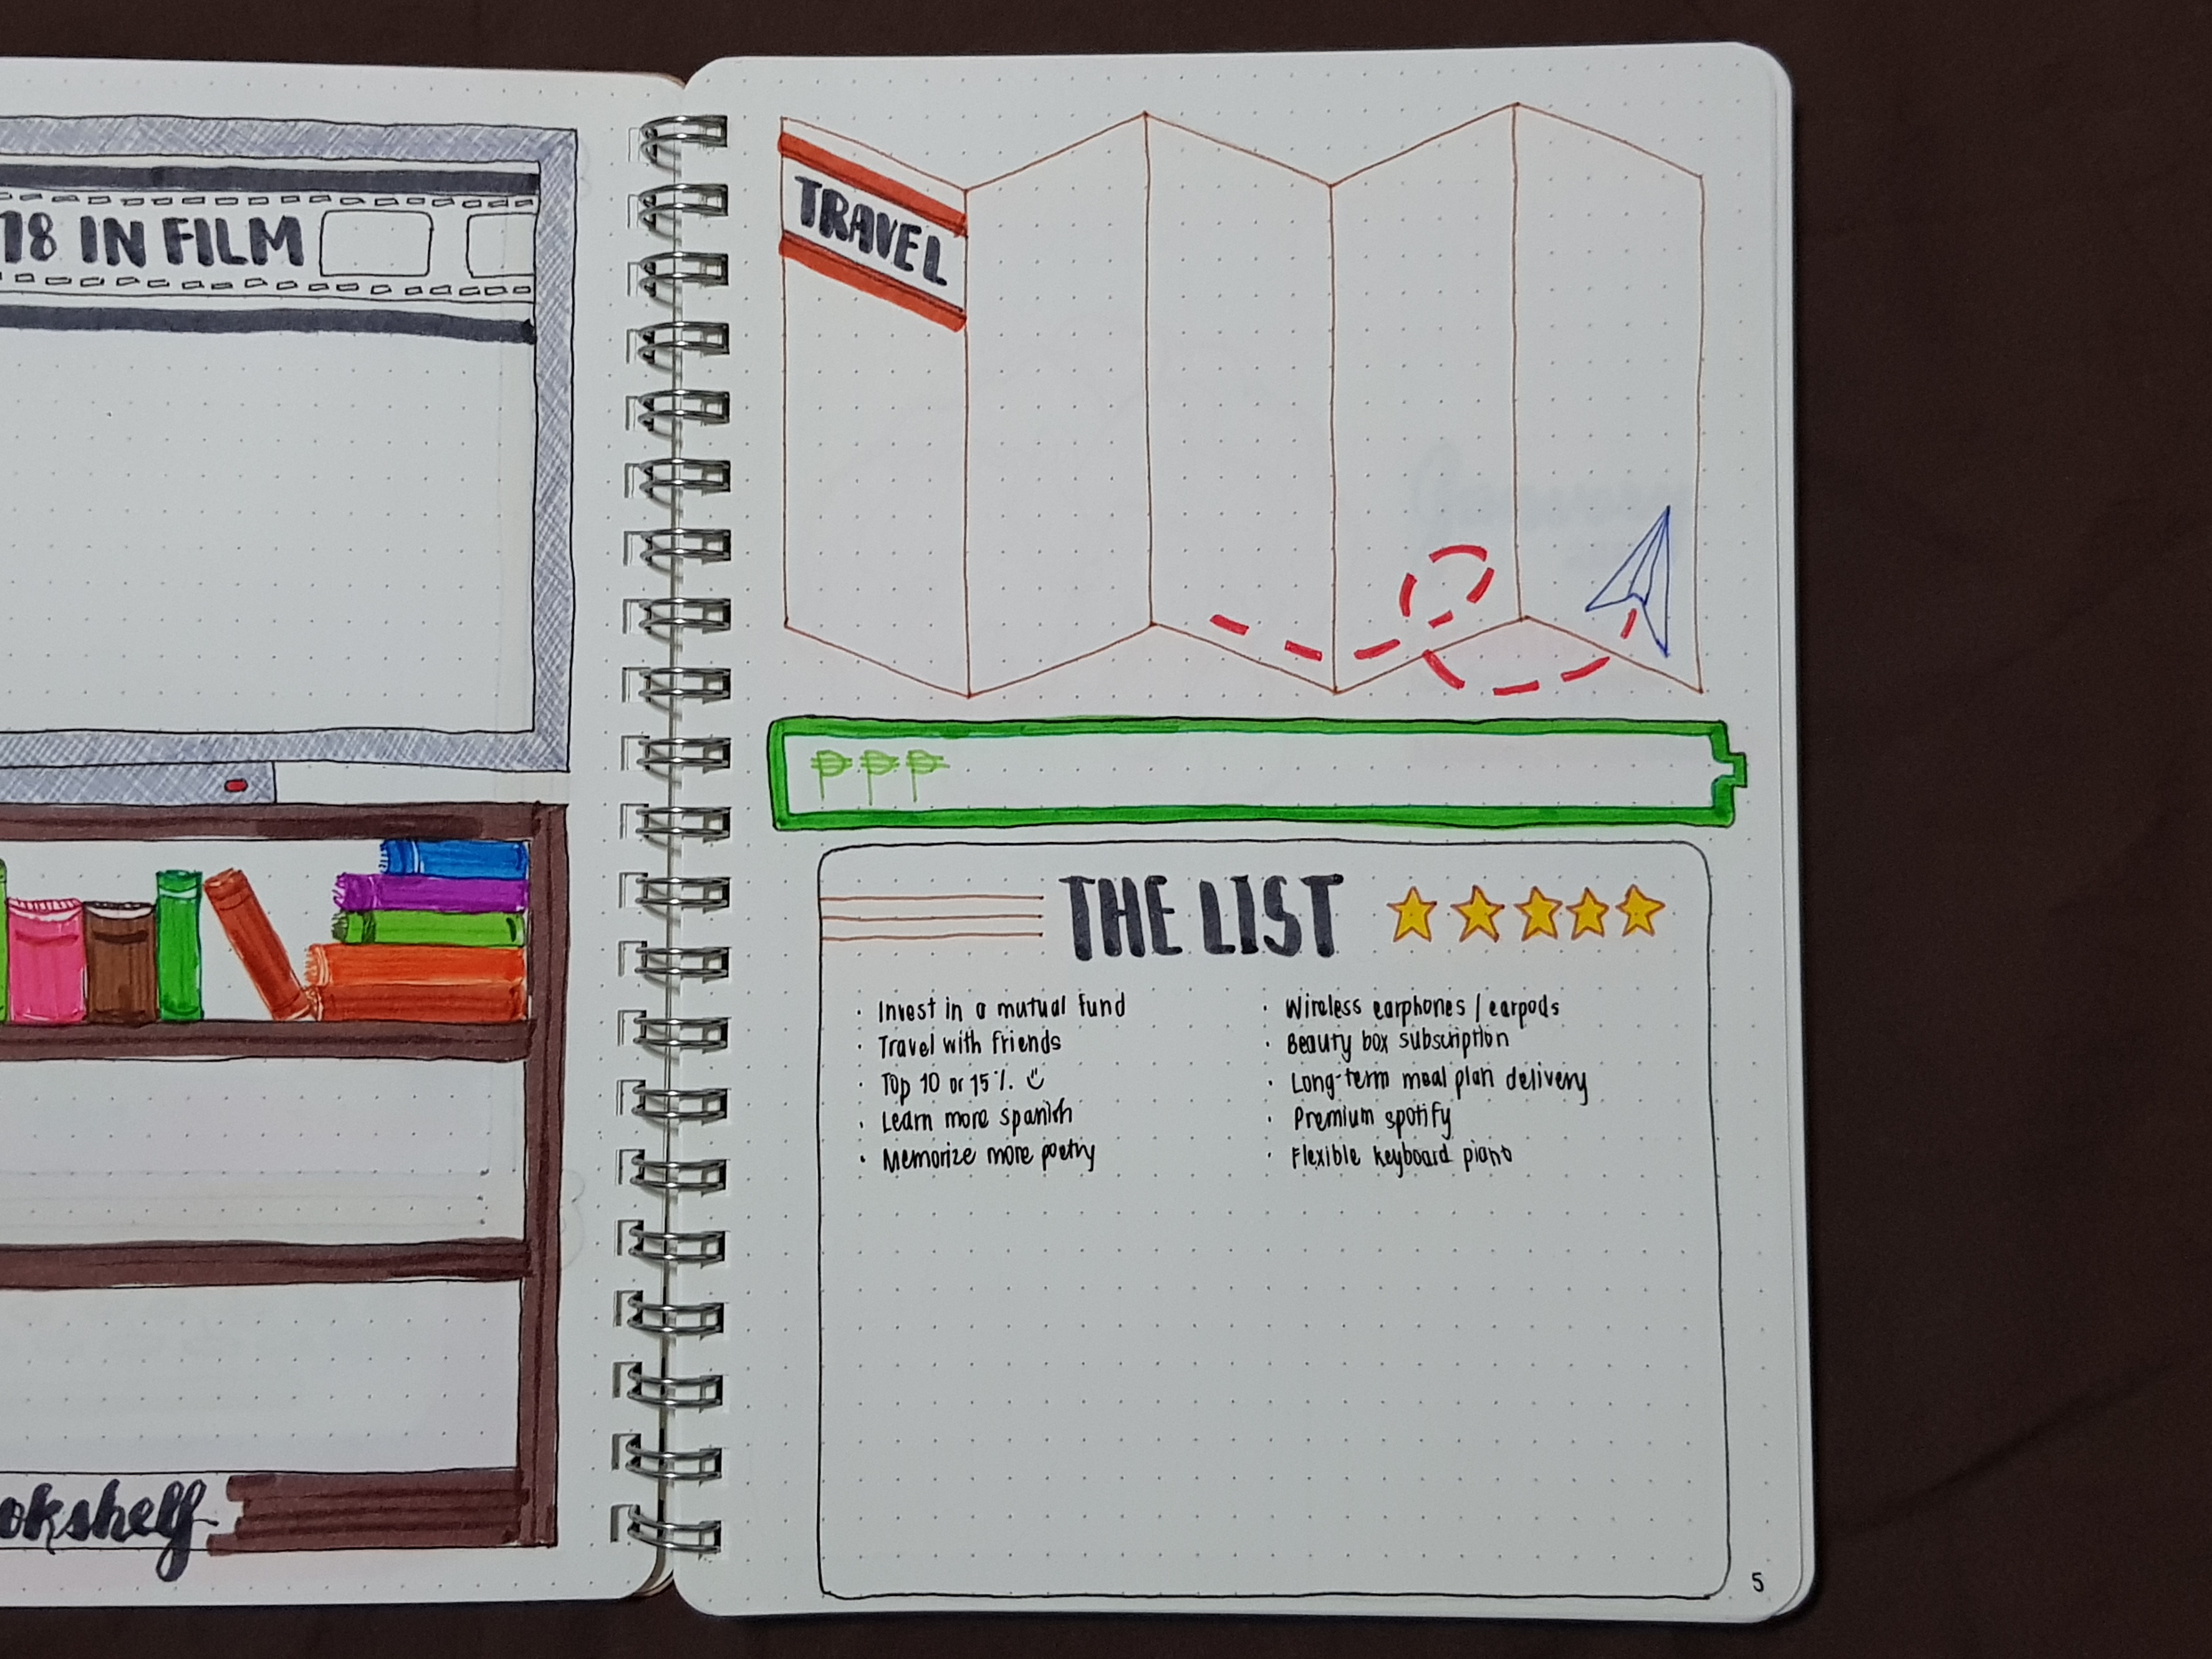 18 IN FILM
okshelf
TRAVEL
₱₱₱
THE LIST
· Invest in a mutual fund
· Travel with friends
· Top 10 or 15%. :)
· Learn more spanish
· Memorize more poetry
· Wireless earphones / earpods
· Beauty box subscription
· Long-term meal plan delivery
· Premium spotify
· Flexible keyboard piano
5